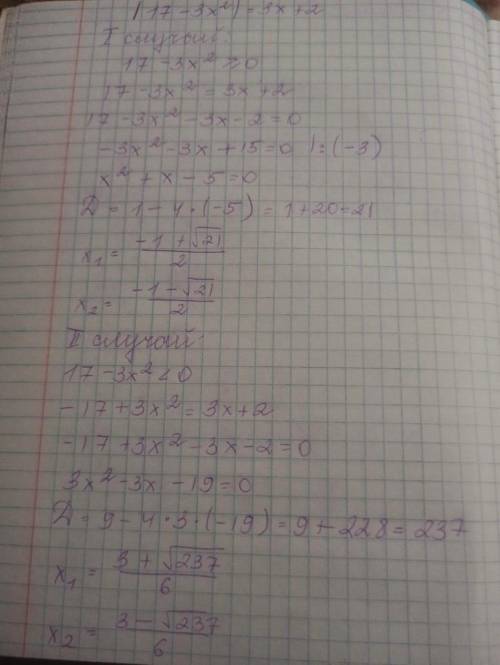 |17 - 3x²| = 3x + 2
I случай:
17 - 3x² ≥ 0
17 - 3x² = 3x + 2
17 - 3x² - 3x - 2 = 0
-3x² - 3x + 15 = 0 | : (-3)
x² + x - 5 = 0
Д = 1 - 4 · (-5) = 1 + 20 = 21
x₁ = (-1 + √21)/2
x₂ = (-1 - √21)/2
II случай:
17 - 3x² < 0
-17 + 3x² = 3x + 2
-17 + 3x² - 3x - 2 = 0
3x² - 3x - 19 = 0
Д = 9 - 4 · 3 · (-19) = 9 + 228 = 237
x₁ = (3 + √237)/6
x₂ = (3 - √237)/6